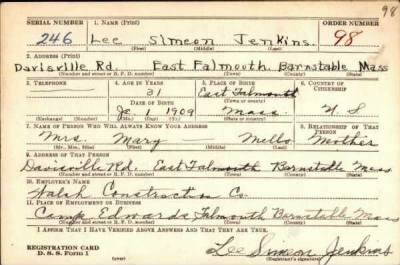 98
SERIAL NUMBER 1. NAME (Print) ORDER NUMBER
246 Lee Simeon Jenkins. 98
(First) (Middle) (Last)
2. ADDRESS (Print)
Davisville Rd. East Falmouth. Barnstable Mass
(Number and street or R. F. D. number) (Town) (County) (State)
3. TELEPHONE 4. AGE IN YEARS 5. PLACE OF BIRTH 6. COUNTRY OF CITIZENSHIP
31 East Falmouth
DATE OF BIRTH (Town or county)
1 1909 Mass. U S
(Exchange) (No.) (Mo.) (Day) (Yr.) (State or country)
7. NAME OF PERSON WHO WILL ALWAYS KNOW YOUR ADDRESS 8. RELATIONSHIP OF THAT PERSON
Mrs. Mary Mello Mother
(Mr., Mrs., Miss) (First) (Middle) (Last)
9. ADDRESS OF THAT PERSON
Davisville Rd. East Falmouth Barnstable Mass
(Number and street or R. F. D. number) (Town) (County) (State)
10. EMPLOYER'S NAME
Walsh Construction Co.
11. PLACE OF EMPLOYMENT OR BUSINESS
Camp Edwards Falmouth Barnstable Mass
(Number and street or R. F. D. number) (Town) (County) (State)
I AFFIRM THAT I HAVE VERIFIED ABOVE ANSWERS AND THAT THEY ARE TRUE.
REGISTRATION CARD
D. S. S. Form 1 Lee Simeon Jenkins
(Registrant's signature)